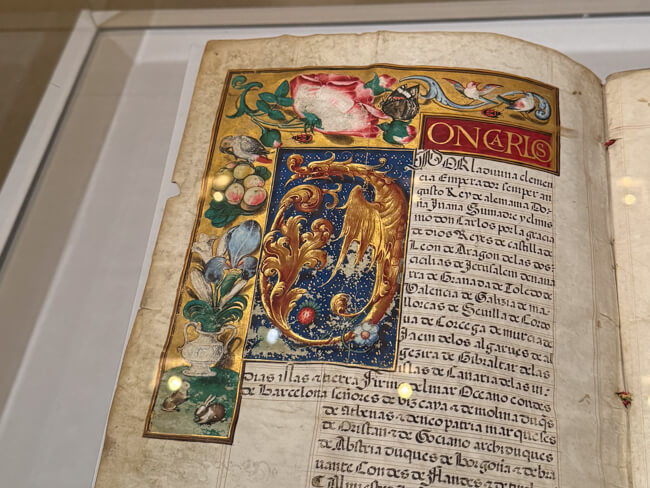 DON CARLOS
POR la diuina clemen
cia Emperador semper au
gusto Rey de alemania Do
ña Juana Su madre y el mis
mo don Carlos por la gracia
de dios Reyes de castilla de
Leon de Aragon de las dos
cicilias de Jerusalem de naua
rra de Granada de Toledo de
Valencia de Galizia de ma
llorcas de Sevilla de Cordo
ua de Corcega de murcia de
Jaem de los algarues de al
gezira de Gibraltar de las
yslas de Canaria de las in
dias islas & tierra firme del mar Oceano condes
de Barcelona señores de Biscaya & de molina duqs
de athenas & de neopatria marqueses
de Oristan & de Gociano archiduques
de Abstria duques de borgoña & de bra
uante Condes de Flandes & de